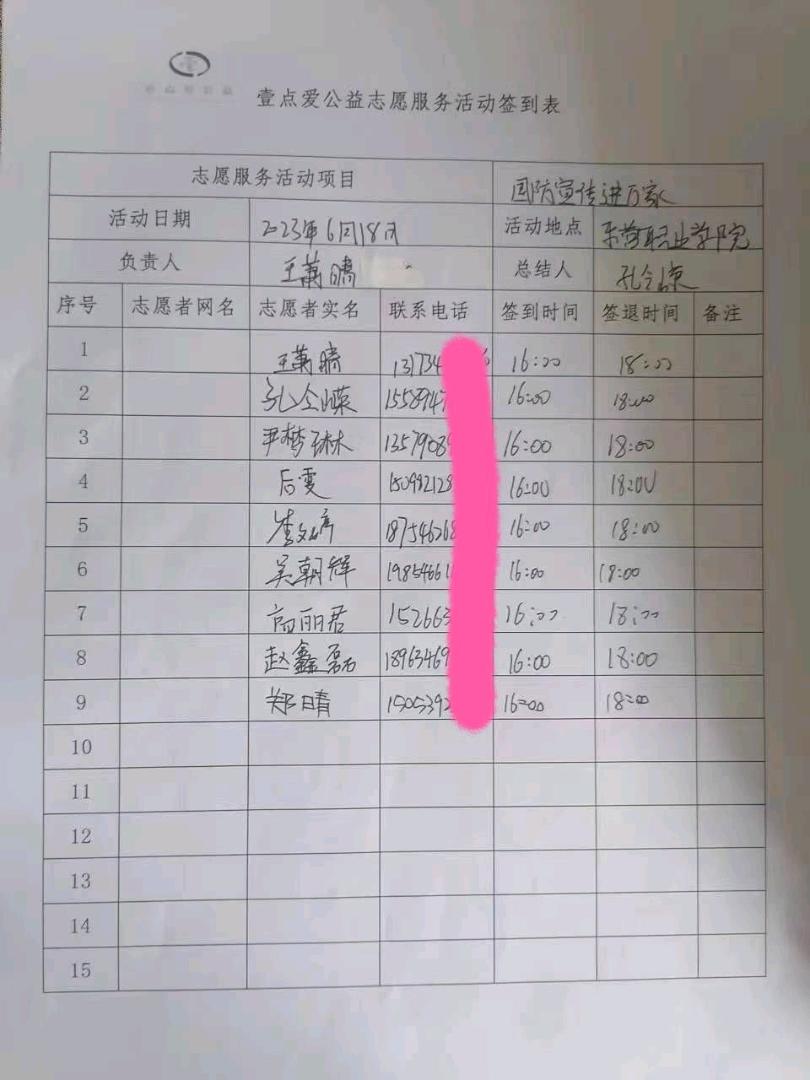 壹点爱公益志愿服务活动签到表
志愿服务活动项目 国防宣传进万家
活动日期 2023年6月18日 活动地点 东营职业学院
负责人 王萧晴 总结人 孔令
序号 志愿者网名 志愿者实名 联系电话 签到时间 签退时间 备注
1 王萧晴 131734 16:00 18:00
2 孔令 1558947 16:00 18:00
3 尹梦琳 1357908 16:00 18:00
4 后雯 150992128 16:00 18:00
5 李文 187546268 16:00 18:00
6 吴朝辉 19854661 16:00 18:00
7 高丽君 152663 16:00 18:00
8 赵鑫磊 18963469 16:00 18:00
9 郑晴 1505392 16:00 18:00
10
11
12
13
14
15